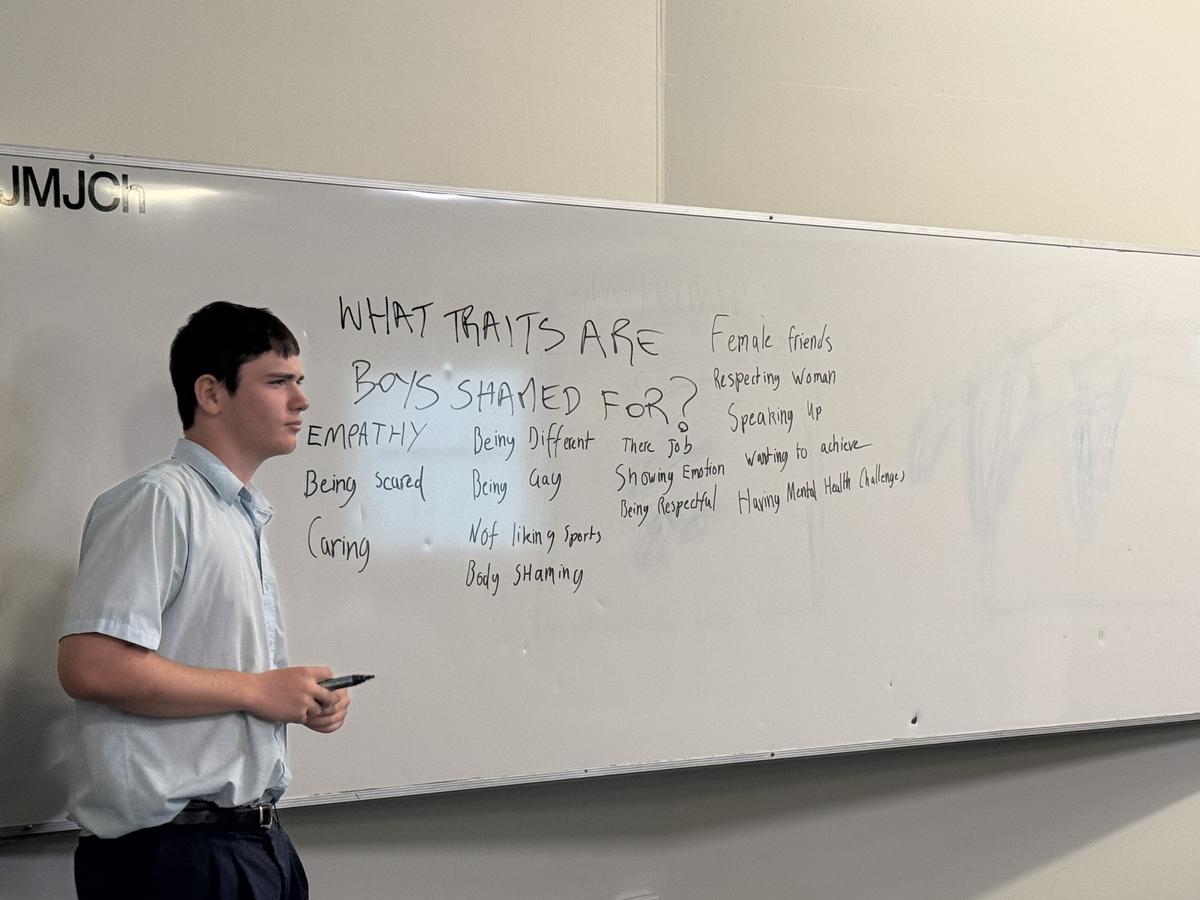 JMJCh
WHAT TRAITS ARE
BOYS SHAMED FOR?
EMPATHY
Being scared
Caring
Being Different
Being Gay
Not liking Sports
Body SHaming
There Job
Showing Emotion
Being Respectful
Female friends
Respecting Woman
Speaking Up
Wanting to achieve
Having Mental Health Challenges